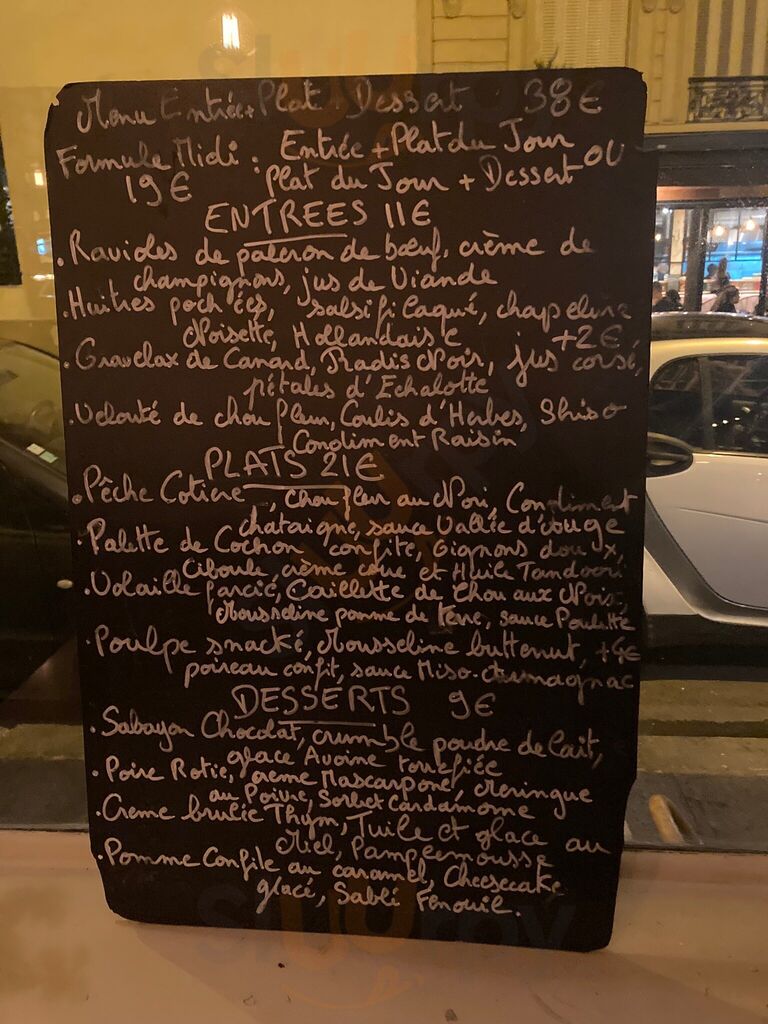 Menu Entrée + Plat + Dessert 38€
Formule Midi : Entrée + Plat du Jour OU
19€ plat du Jour + Dessert
ENTREES 11€
. Ravioles de paleron de bœuf, crème de
champignons, jus de Viande
. Huitres pochées, salsifi laqué, chapelure
Noisette, Hollandaise +2€
. Gravelax de Canard, Radis Noir, jus corsé,
pétales d'Echalotte
. Velouté de chou fleur, Coulis d'Herbes, Shiso
Condiment Raisin
PLATS 21€
. Pêche Cotiere, chou fleur au Nori, Condiment
chataigne, sauce Vallée d'auge
. Palette de Cochon confite, Oignons doux,
Ciboule, crème crue et Huile Tandoori
. Volaille farcie, Caillette de Chou aux Noix,
Mousseline pomme de terre, sauce Poulette
. Poulpe snacké, Mousseline butternut, +4€
poireau confit, sauce Miso-Armagnac
DESSERTS 9€
. Sabayon Chocolat, crumble poudre de lait,
glace Avoine toréfiée
. Poire Rotie, creme Mascarpone, Meringue
au Poivre, Sorbet Cardamome
. Creme brulée Thym, Tuile et glace au
Miel, Pamplemousse
. Pomme Confite au caramel, Cheesecake
glacé, Sablé Fenouil.